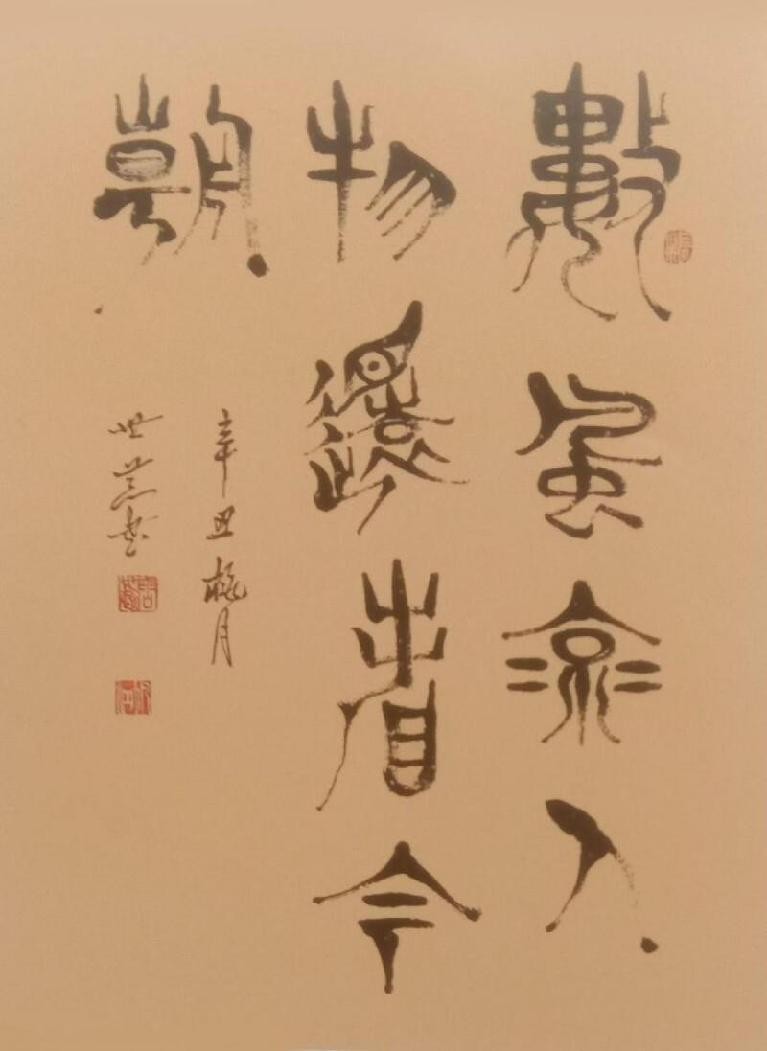 數風流人
物還看今
朝
辛丑桃月
世 书